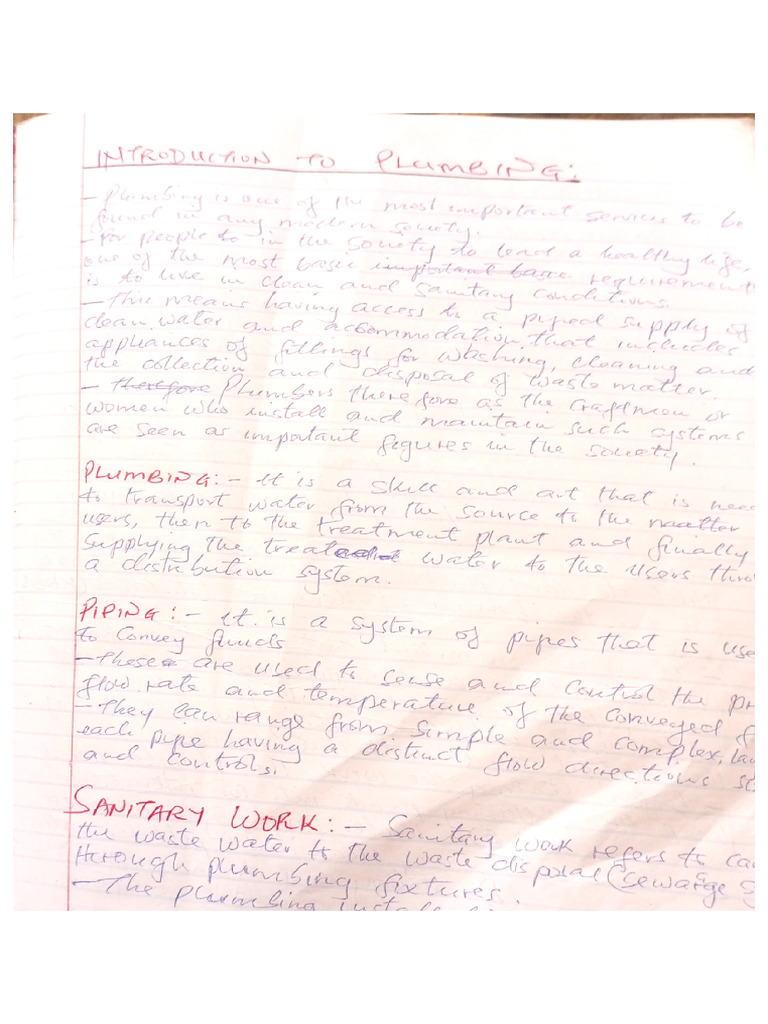 INTRODUCTION TO PLUMBING:
- Plumbing is one of the most important services to be
found in any modern society.
- for people to in the society to lead a healthy life,
one of the most basic important basic requirement
is to live in clean and sanitary conditions.
- This means having access to a piped supply of
clean water and accommodation that includes
appliances of fittings for washing, cleaning and
the collection and disposal of waste matter.
- therefore Plumbers therefore as the craftmen or
women who install and maintain such systems
are seen as important figures in the society.
PLUMBING:- It is a skill and art that is nee
to transport water from the source to the
users, then to the treatment plant and finally
supplying the treated water to the users thro
a distribution system.
PIPING:- It is a system of pipes that is use
to convey fluids
- These are used to sense and control the pr
flow rate and temperature of the conveyed f
- They can range from simple and complex,
each pipe having a distinct flow directions
and controls.
SANITARY WORK:- Sanitary work refers to ca
the waste water to the waste disposal (sewarage
through plumbing fixtures.
- The plumbing